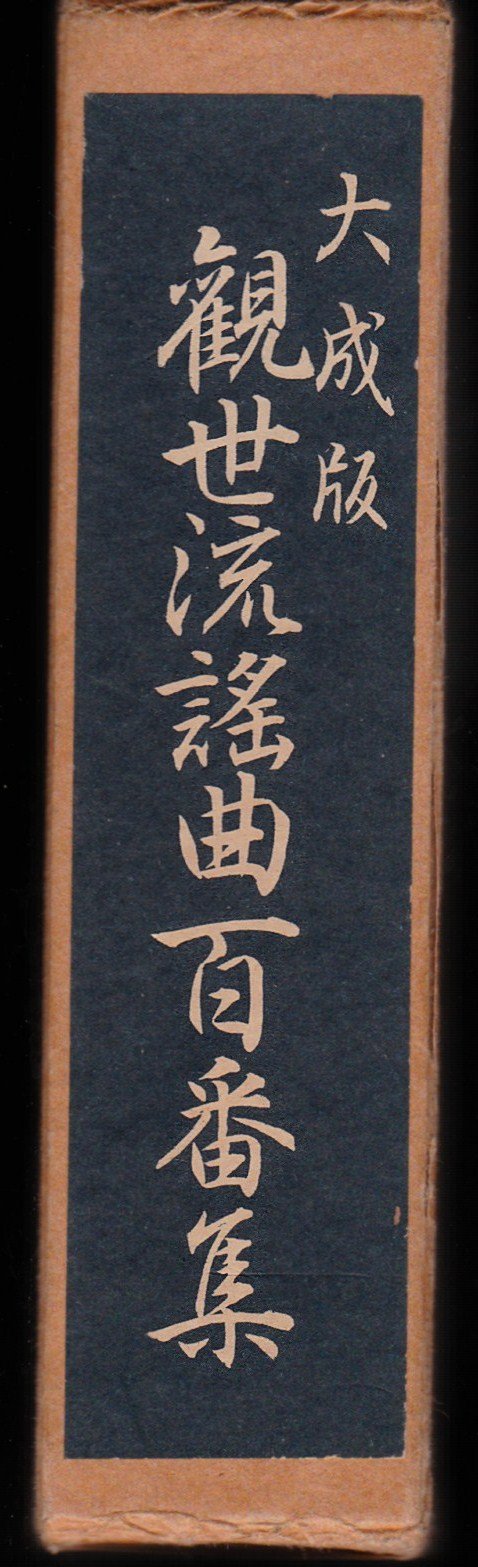 大成版
觀世流謠曲百番集